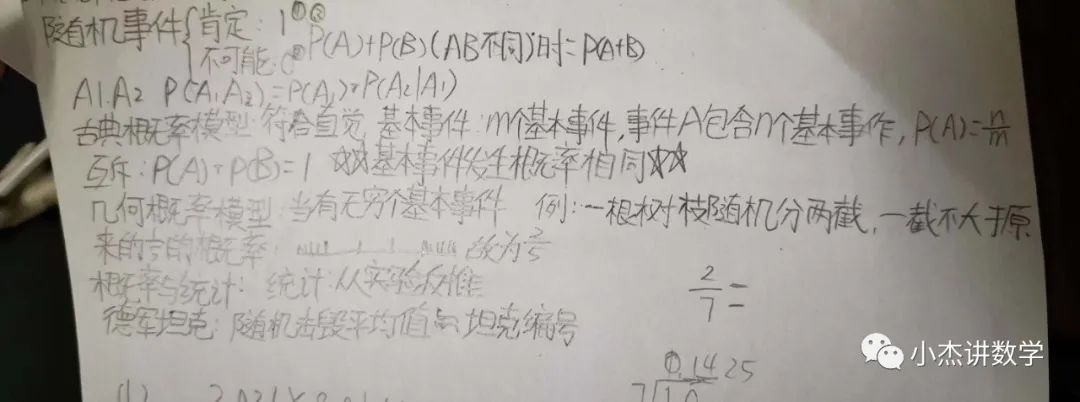 随机事件{肯定:1①③
不可能:0② P(A)+P(B)(AB不同)时=P(A+B)
A1.A2 P(A₁A₂)=P(A₁)×P(A₂|A₁)
古典概率模型:符合直觉 基本事件:m个基本事件,事件A包含n个基本事件,P(A)=n/m
互斥:P(A)+P(B)=1 ☆☆基本事件发生概率相同☆☆
几何概率模型:当有无穷个基本事件 例:一根树枝随机分两截,一截不大于原
来的的概率: 故为2/5
概率与统计:统计:从实验反推
德军坦克:随机击毁平均值 坦克编号
2/7=
0.1425
7
小杰讲数学